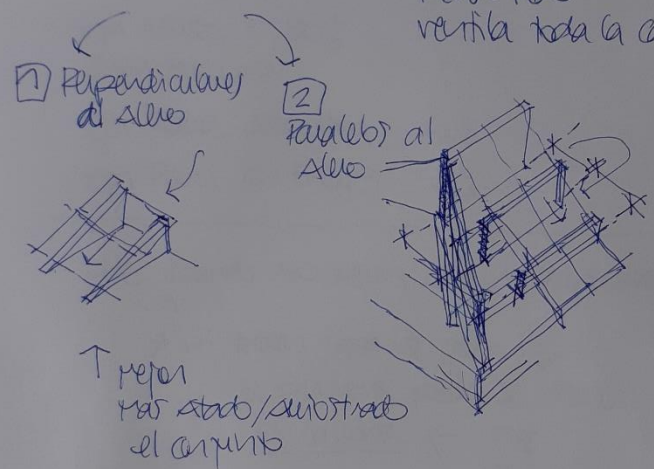 ventila toda la
1 Perpendiculares
al Alero
2
Paralelos al
Alero
↑ mejor
más atado/arriostrado
el conjunto